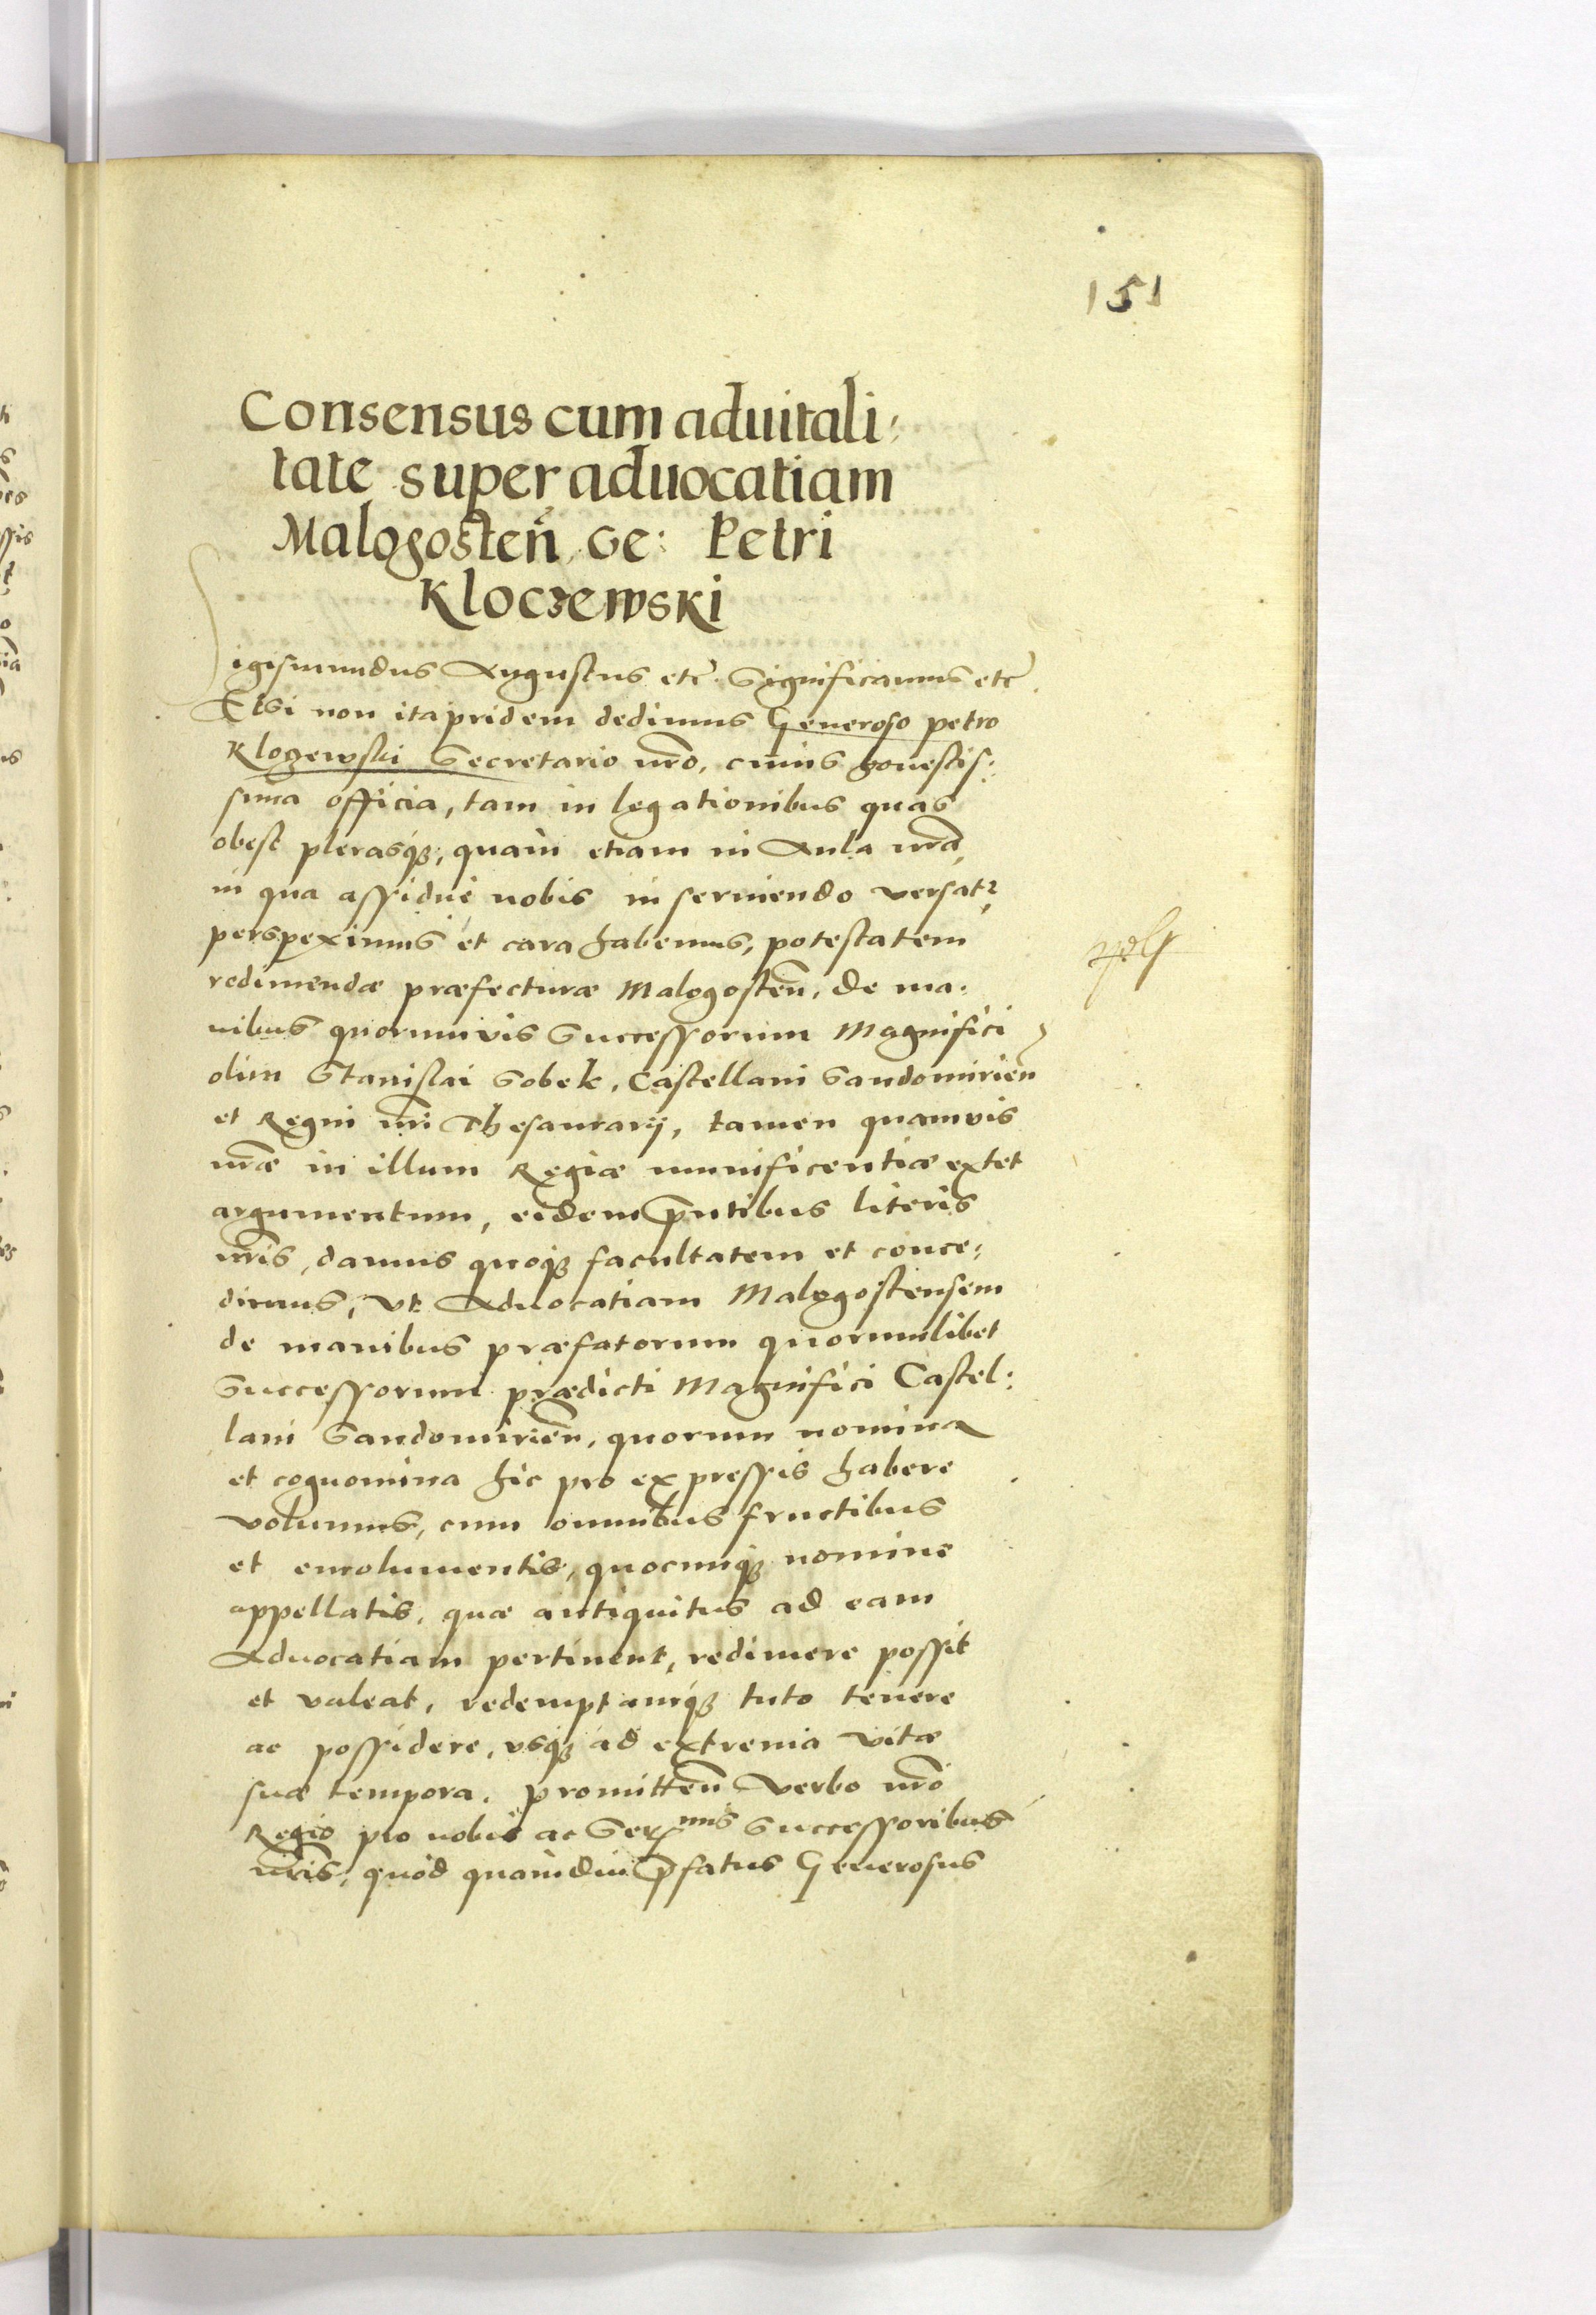 151
Consensus cum aduitali:
tate super aduocatiam
Malogosten̄ Ge: Petri
Kloczewski
Sigismundus Augustus etc̄. Significamus etc̄.
Etsi non ita pridem dedimus Generoso petro
Kloczewski Secretario nr̄o, cuius honestis:
sima officia, tam in legationibus quas
obest plerasqꝫ, quàm etiam in Aula nr̄a,
in qua assiduè nobis in seruiendo versatr
perspeximus et cara habemus, potestatem
redimendæ præfecturæ Malogosten̄, de ma:
nibus quorumuis Successorum Magnifici
olim Stanislai Sobek, Castellani Sandomirien̄
et Regni nr̄i Thesaurarij, tamen quamvis
nr̄æ in illum Regiæ munificentiæ extet
argumentum, eidem p̄ntibus literis
nr̄is, damus quoqꝫ facultatem et conce:
dimus, vt Aduocatiam Malogostensem
de manibus præfatorum quorumlibet
Successorum prædicti Magnifici Castel:
lani Sandomirien̄, quorum nomina
et cognomina hic pro expressis habere
volumus, cum omnibus fructibus
et emolumentis, quocunqꝫ nomine
appellatis, quæ antiquitus ad eam
Aduocatiam pertinent, redimere possit
et valeat, redemptamqꝫ tuto tenere
ac possidere, vsqꝫ ad extrema vitæ
suæ tempora. promitten̄ verbo nr̄o
Regio pro nobis ac Serᵐⁱˢ Successoribus
nr̄is, quòd quamdiu p̄fatus Generosus